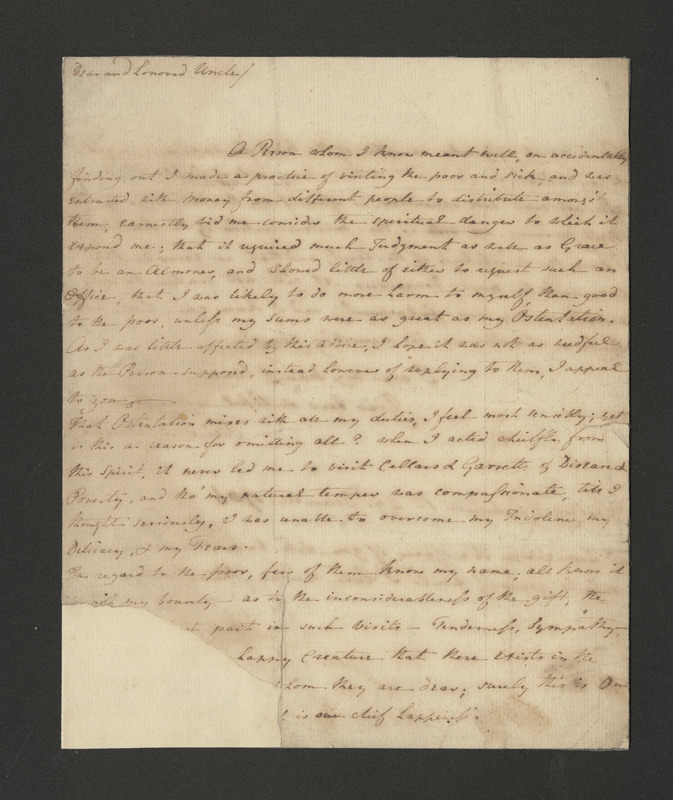 Dear and honored Uncle/
A Person whom I know meant well, on accidentally
finding out I made a practice of visiting the poor and sick, and was
entrusted with money from different people to distribute amongst
them, earnestly bid me consider the spiritual danger to which it
exposed me; that it required much Judgment as well as Grace
to be an Almoner, and showed little of either to request such an
Office, that I was likely to do more harm to myself, than good
to the poor, unless my sums were as great as my Ostentation.
As I was little affected by this advice, I hope it was not as needful
as the Person supposed, instead however of replying to them, I appeal
to you
That Ostentation mixes with all my duties, I feel most sensibly; yet
is this a reason for omitting all? when I acted chiefly from
this Spirit, it never led me to visit Cellars & Garretts of Disease &
Poverty, and tho' my natural temper was compassionate, till I
thought seriously, I was unable to overcome my Indolence my
Delicacy, & my Fears.
In regard to the poor, few of them know my name, all know it
is not my bounty as to the inconsiderableness of the gift, the
part in such Visits - Tenderness, Sympathy
happy Creature that there exists in the
whom they are dear; surely this is Our
is our chief happiness.